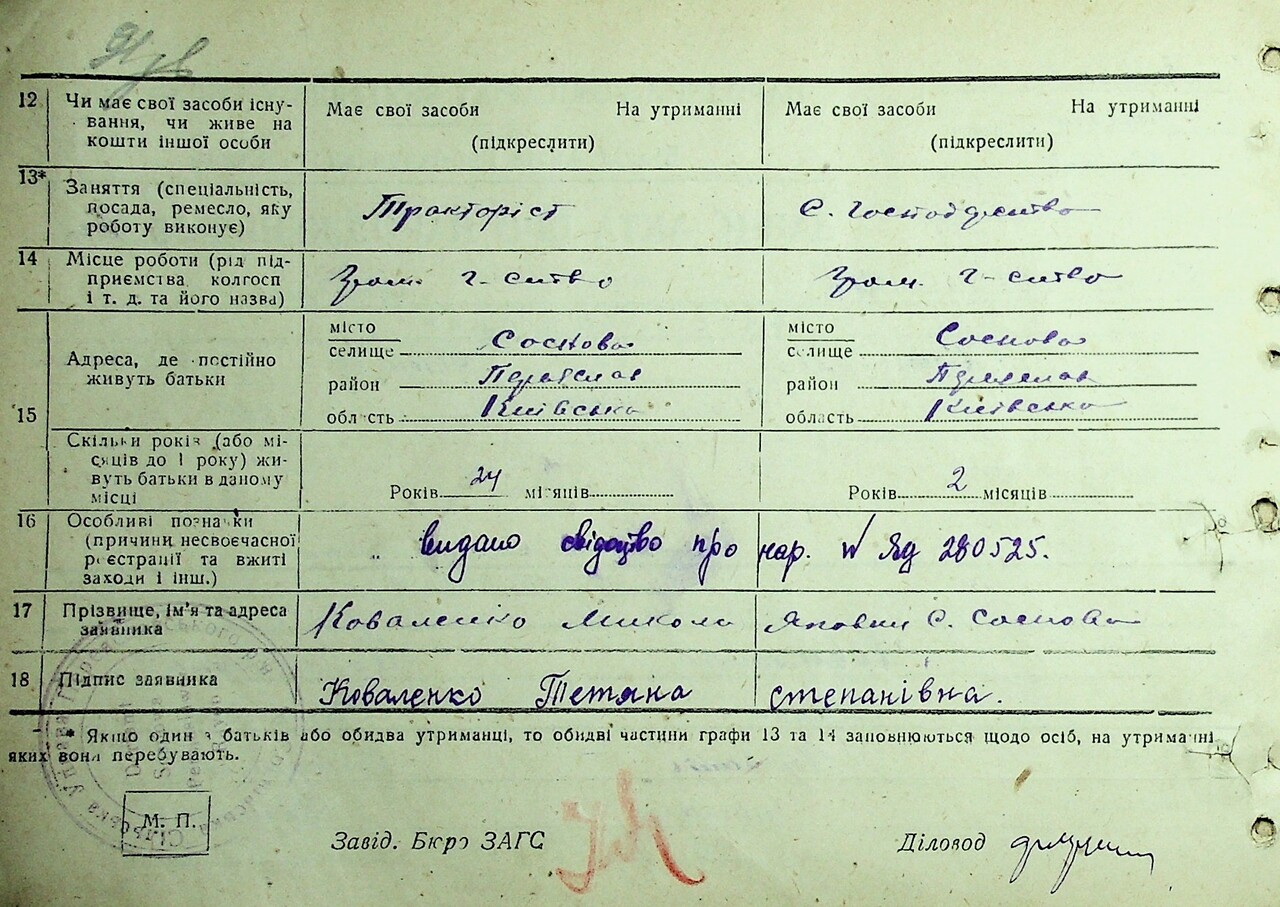 12 Чи має свої засоби існу-
вання, чи живе на
кошти іншої особи
Має свої засоби На утриманні
(підкреслити)
Має свої засоби На утриманні
(підкреслити)
13* Заняття (спеціальність,
посада, ремесло, яку
роботу виконує)
Тракторіст
С. господарство
14 Місце роботи (рід під-
приємства колгосп
і т. д. та його назва)
Гром. г-ство
Гром. г-ство
15 Адреса, де постійно
живуть батьки
місто
селище Соснова
район Переяслав
область Київська
місто
селище Соснова
район Переяслав
область Київська
Скільки років (або мі-
сяців до 1 року) жи-
вуть батьки в даному
місці
Років 24 місяців
Років 2 місяців
16 Особливі познаки
(причини несвоєчасної
реєстрації та вжиті
заходи і інш.)
видано свідоцтво про нар. № ЯД 280525.
17 Прізвище, ім'я та адреса
заявника
Коваленко Микола С. Соснова
18 Підпис заявника
Коваленко Тетяна степанівна.
* Якщо один з батьків або обидва утриманці, то обидві частини графи 13 та 14 заповнюються щодо осіб, на утриманні
яких вони перебувають.
М. П.
Завід. Бюро ЗАГС
Діловод